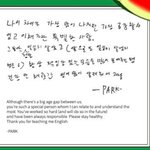 나이 차이는 가장 많이 나지만 가장 공감할 수
있고 이해되는 특별한 사람.
그동안 열심히 살았고 (앞으로도 열심히 살테지
만) 항상 책임감 있는 모습을 보여줘서
건강 챙기면서
-PARK-
Although there's a big age gap between us,
you're such a special person whom I can relate to and understand the
most. You've worked so hard (and will do so in the future)
and have been always responsible. Please stay healthy.
Thank you for teaching me English.
-PARK-